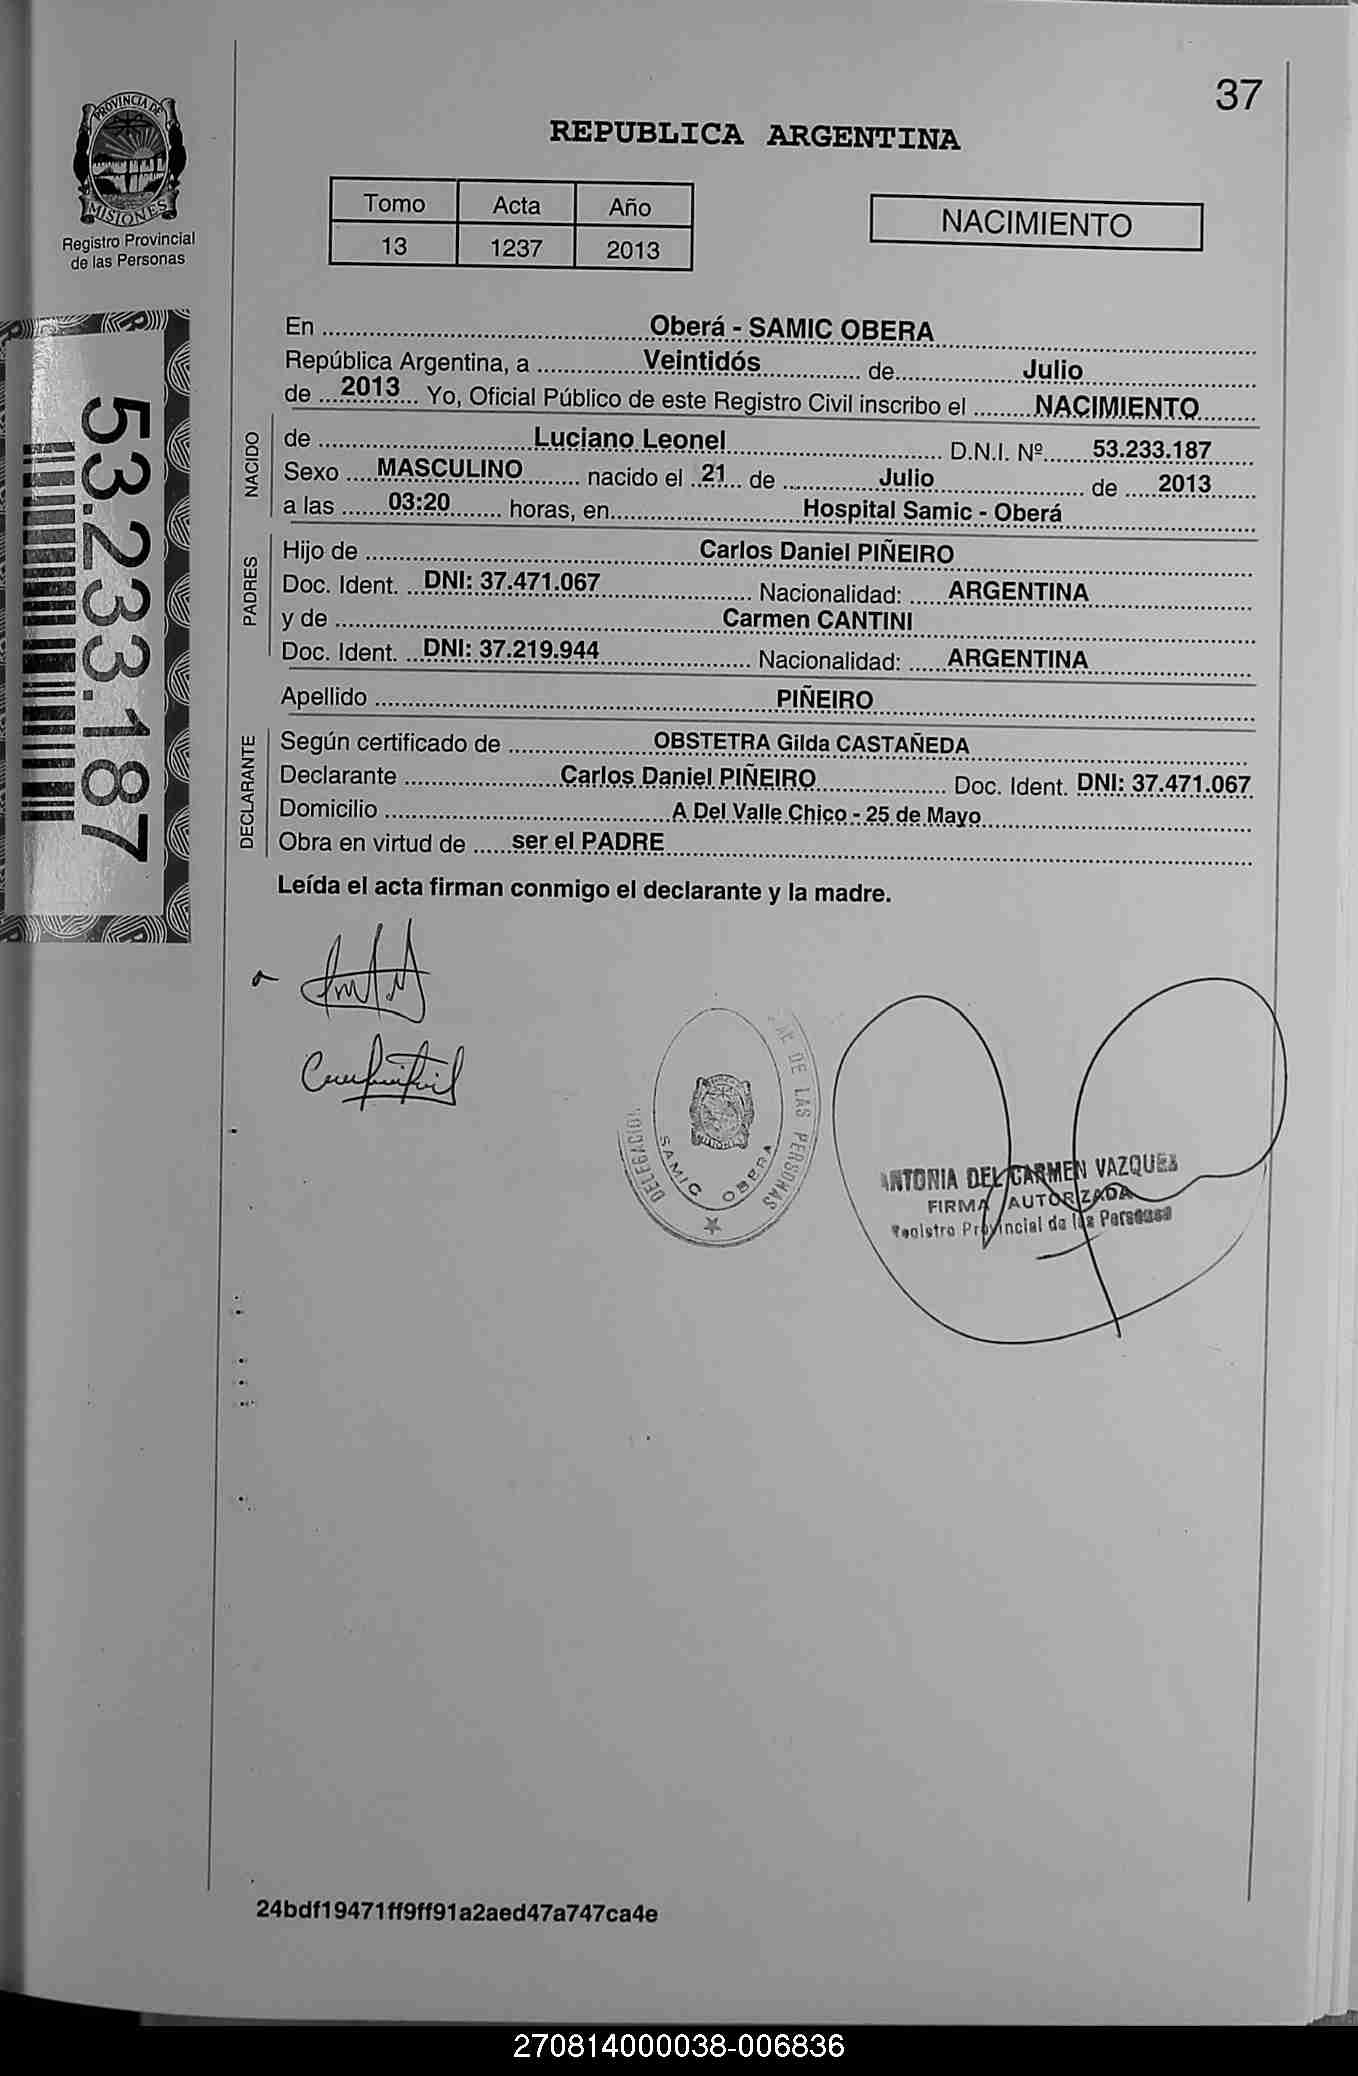 37
REPUBLICA ARGENTINA
PROVINCIA DE
MISIONES
Registro Provincial
de las Personas
Tomo Acta Año
13 1237 2013
NACIMIENTO
53.233.187
En Oberá - SAMIC OBERA
República Argentina, a Veintidós de Julio
de 2013 Yo, Oficial Público de este Registro Civil inscribo el NACIMIENTO
NACIDO
de Luciano Leonel D.N.I. Nº 53.233.187
Sexo MASCULINO nacido el 21 de Julio de 2013
a las 03:20 horas, en Hospital Samic - Oberá
PADRES
Hijo de Carlos Daniel PIÑEIRO
Doc. Ident. DNI: 37.471.067 Nacionalidad: ARGENTINA
y de Carmen CANTINI
Doc. Ident. DNI: 37.219.944 Nacionalidad: ARGENTINA
Apellido PIÑEIRO
DECLARANTE
Según certificado de OBSTETRA Gilda CASTAÑEDA
Declarante Carlos Daniel PIÑEIRO Doc. Ident. DNI: 37.471.067
Domicilio A Del Valle Chico - 25 de Mayo
Obra en virtud de ser el PADRE
Leída el acta firman conmigo el declarante y la madre.
DE LAS PERSONAS
SAMIC OBERA
ANTONIA DEL CARMEN VAZQUEZ
FIRMA AUTORIZADA
Registro Provincial de las Personas
24bdf19471ff9ff91a2aed47a747ca4e
270814000038-006836